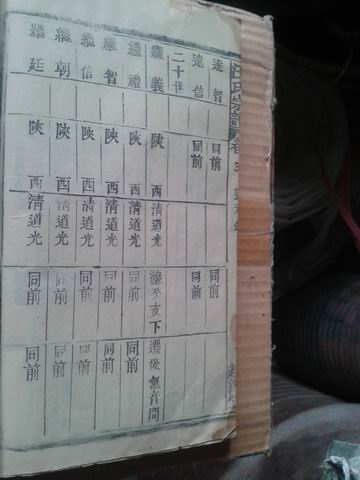 氏宗譜卷
達智 同前 同前
達信 同前 同前
二十世
繼義 陝西 清道光 濂公支下 遷後無音問
繼禮 陝西 清道光 同前 同前
繼智 陝西 清道光 同前 同前
繼信 陝西 清道光 同前 同前
繼朝 陝西 清道光 同前 同前
繼廷 陝西 清道光 同前 同前